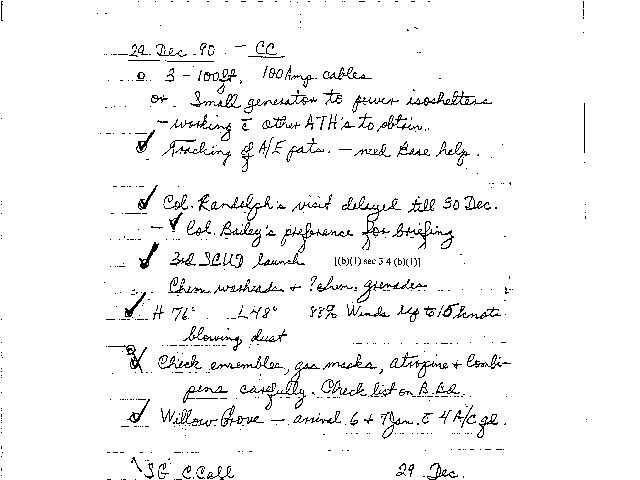 29 Dec 90 - CC
o 3 - 100ft, 100 Amp cables
or Small generator to power isoshelters
- working c̄ other ATH's to obtain.
Tracking of A/E pats. - need Base help.
Col. Randolph's visit delayed till 30 Dec.
- Col. Bailey's preference for briefing
3rd SCUD launch [(b)(1) sec 3 4 (b)(1)]
Chem warheads + ? chem. grenades
H 76° L 48° 88% Winds up to 15 knots
blowing dust
Check ensembles, gas masks, atropine + Combi-
pens carefully. Check list on B.Bd.
Willow Grove - arrival 6 + 7 Jan. c̄ 4 A/C gd.
SG C.Call 29 Dec.